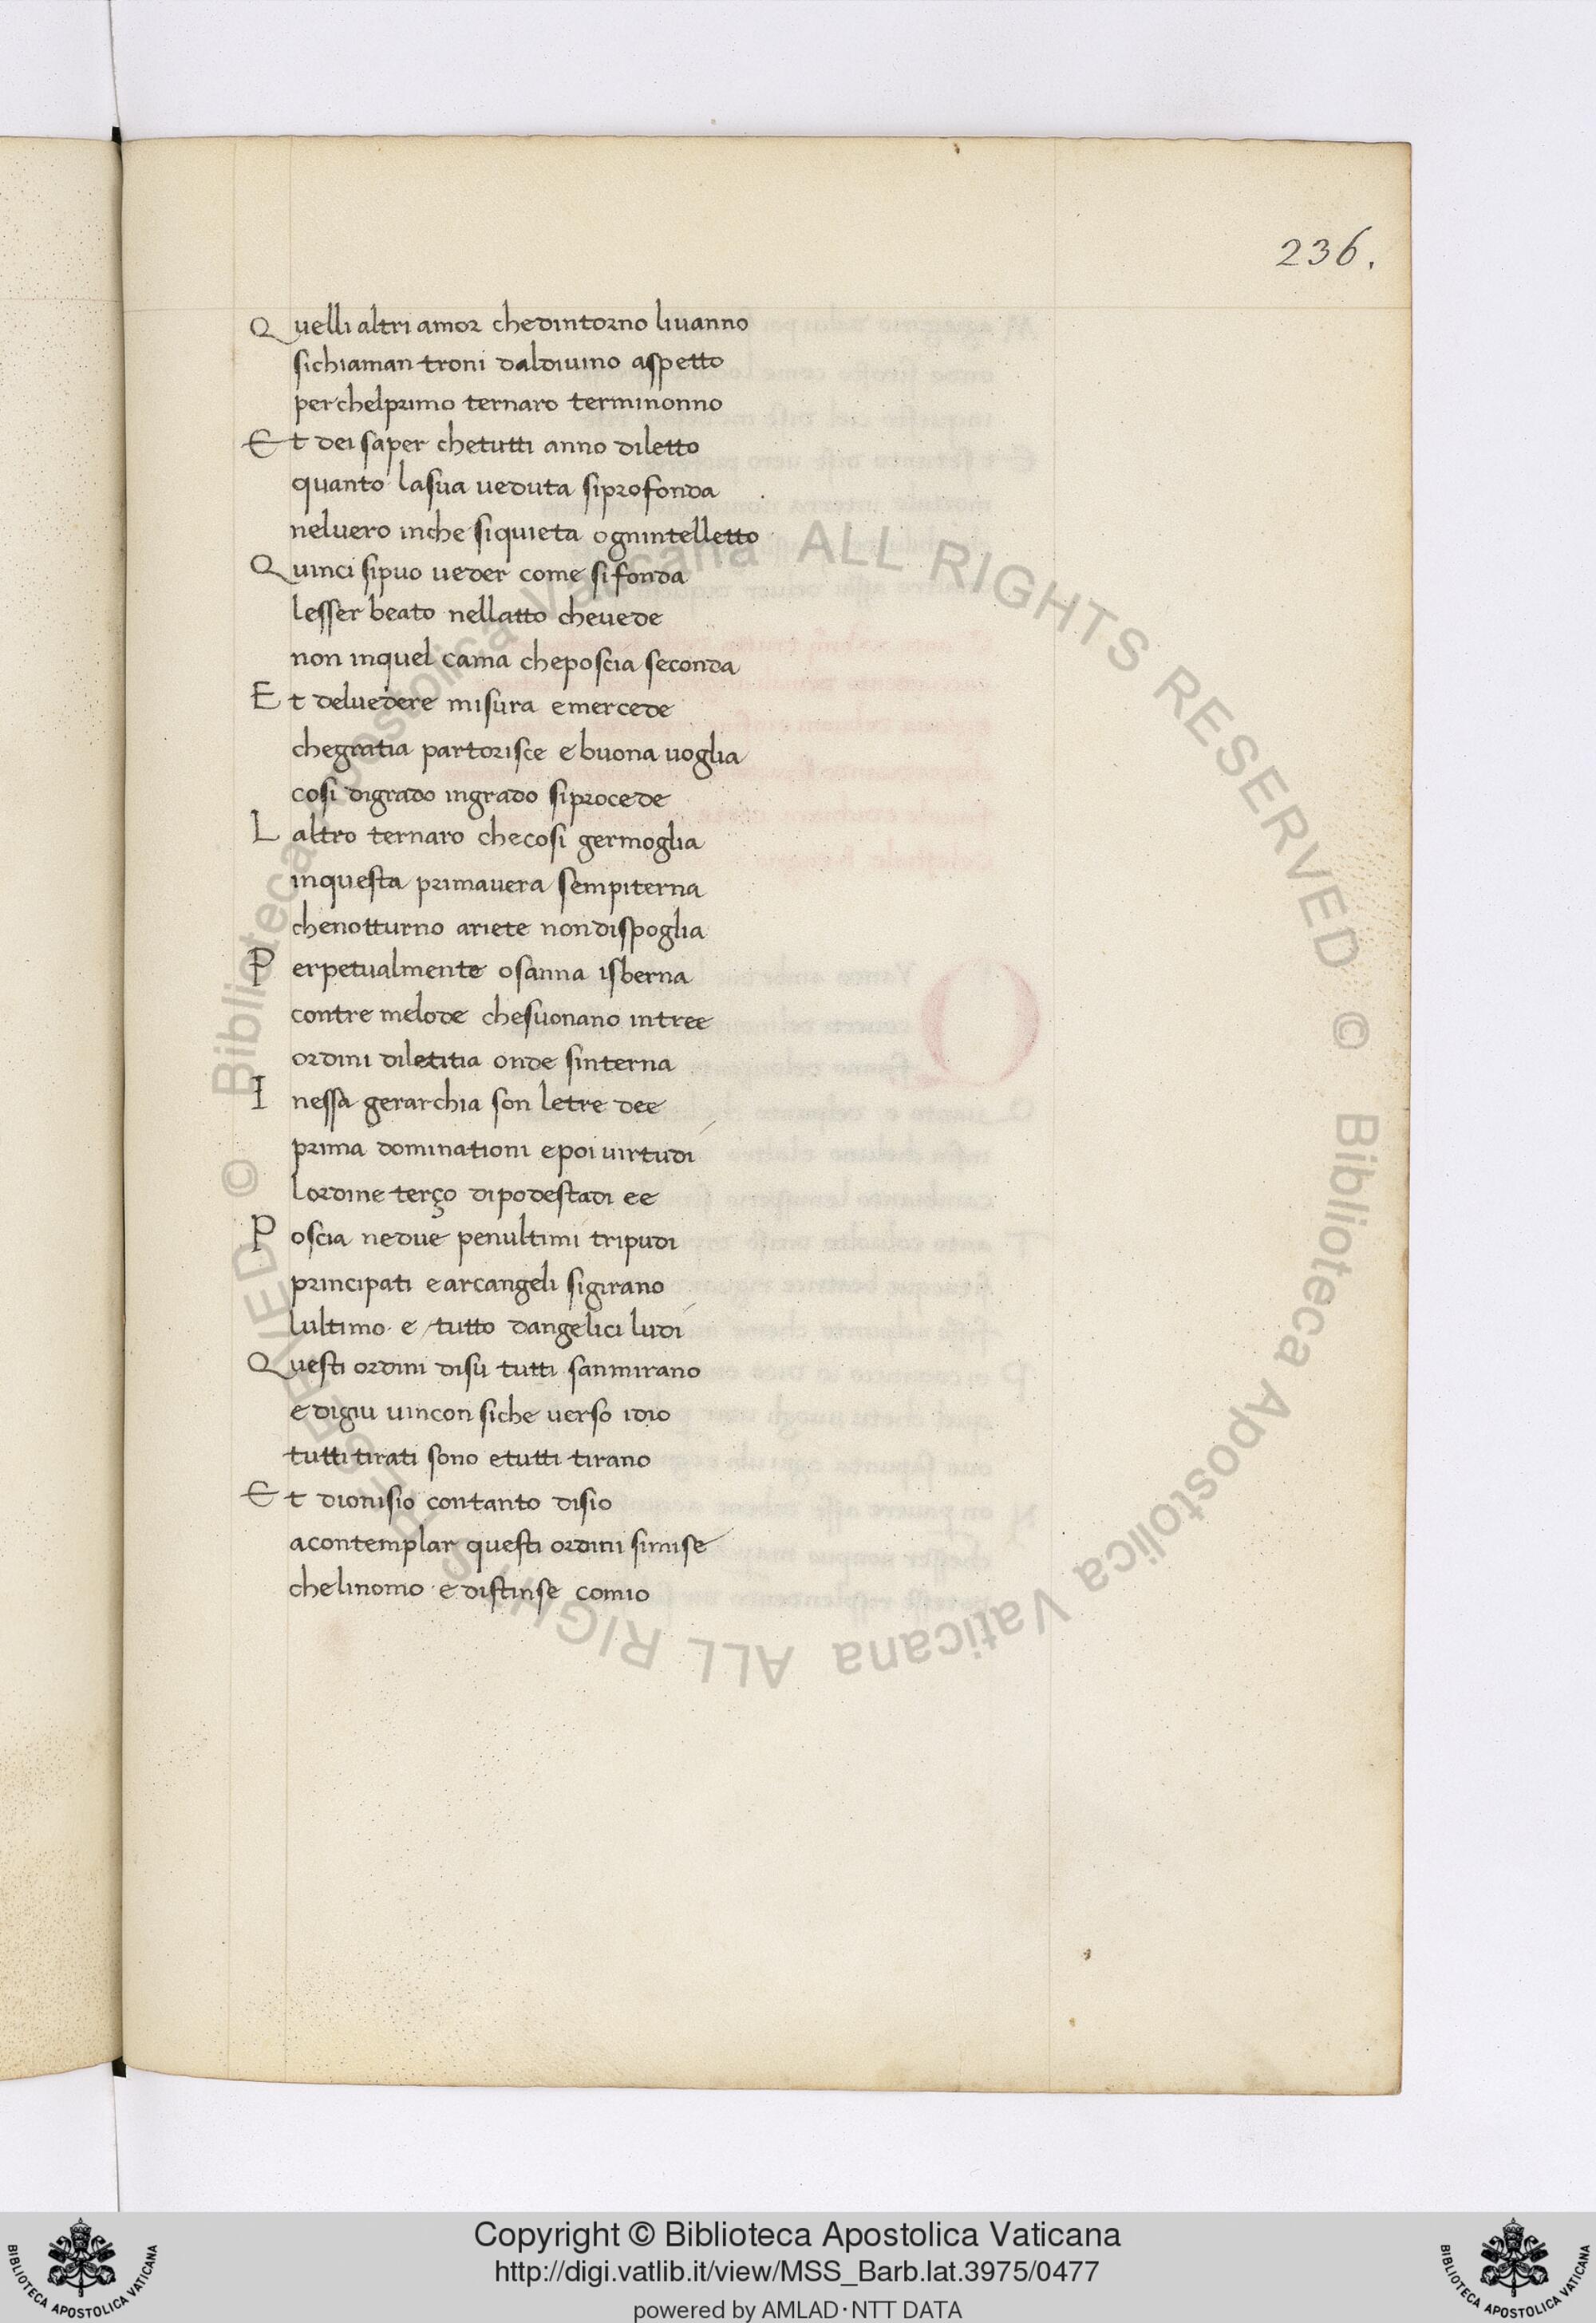 236.
Quelli altri amor chedintorno livanno
sichiaman troni daldivino aspetto
per chelprimo ternaro terminonno
Et dei saper chetutti anno diletto
quanto lasua veduta siprofonda
nelvero inche siquieta ognintelletto
Quinci sipuo veder come sifonda
lesser beato nellatto chevede
non inquel cama cheposcia seconda
Et delvedere misura emercede
chegratia partorisce e buona voglia
cosi digrado ingrado siprocede
Laltro ternaro checosi germoglia
inquesta primavera sempiterna
chenotturno ariete nondispoglia
Perpetualmente osanna isberna
contre melode chesuonano intree
ordini diletitia onde sinterna
Inessa gerarchia son letre dee
prima dominationi epoi virtudi
lordine terço dipodestadi ee
Poscia nedue penultimi tripudi
principati e arcangeli sigirano
lultimo e tutto dangelici ludi
Questi ordini disu tutti sanmirano
e digiu vincon siche verso idio
tutti tirati sono etutti tirano
Et dionisio contanto disio
acontemplar questi ordini simise
chelinomo e distinse comio
© Biblioteca Apostolica Vaticana ALL RIGHTS RESERVED © Biblioteca Apostolica Vaticana ALL RIGHTS RESERVED
Copyright © Biblioteca Apostolica Vaticana
http://digi.vatlib.it/view/MSS_Barb.lat.3975/0477
powered by AMLAD·NTT DATA
BIBLIOTECA APOSTOLICA VATICANA
BIBLIOTECA APOSTOLICA VATICANA